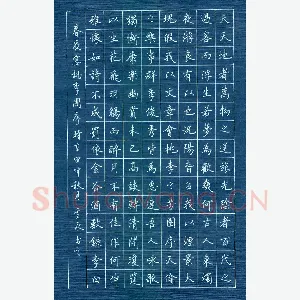 夫天地者萬物之逆旅光陰者百代之
過客而浮生若夢為歡幾何古人秉燭
夜遊良有以也況陽春召我以煙景大
塊假我以文章會桃李之芳園序天倫
之樂事群季俊秀皆為惠連吾人詠歌
獨慚康樂幽賞未已高談轉清開瓊筵
以坐花飛羽觴而醉月不有佳作何伸
雅懷如詩不成罰依金谷酒數錄李白
春夜宴桃李園序